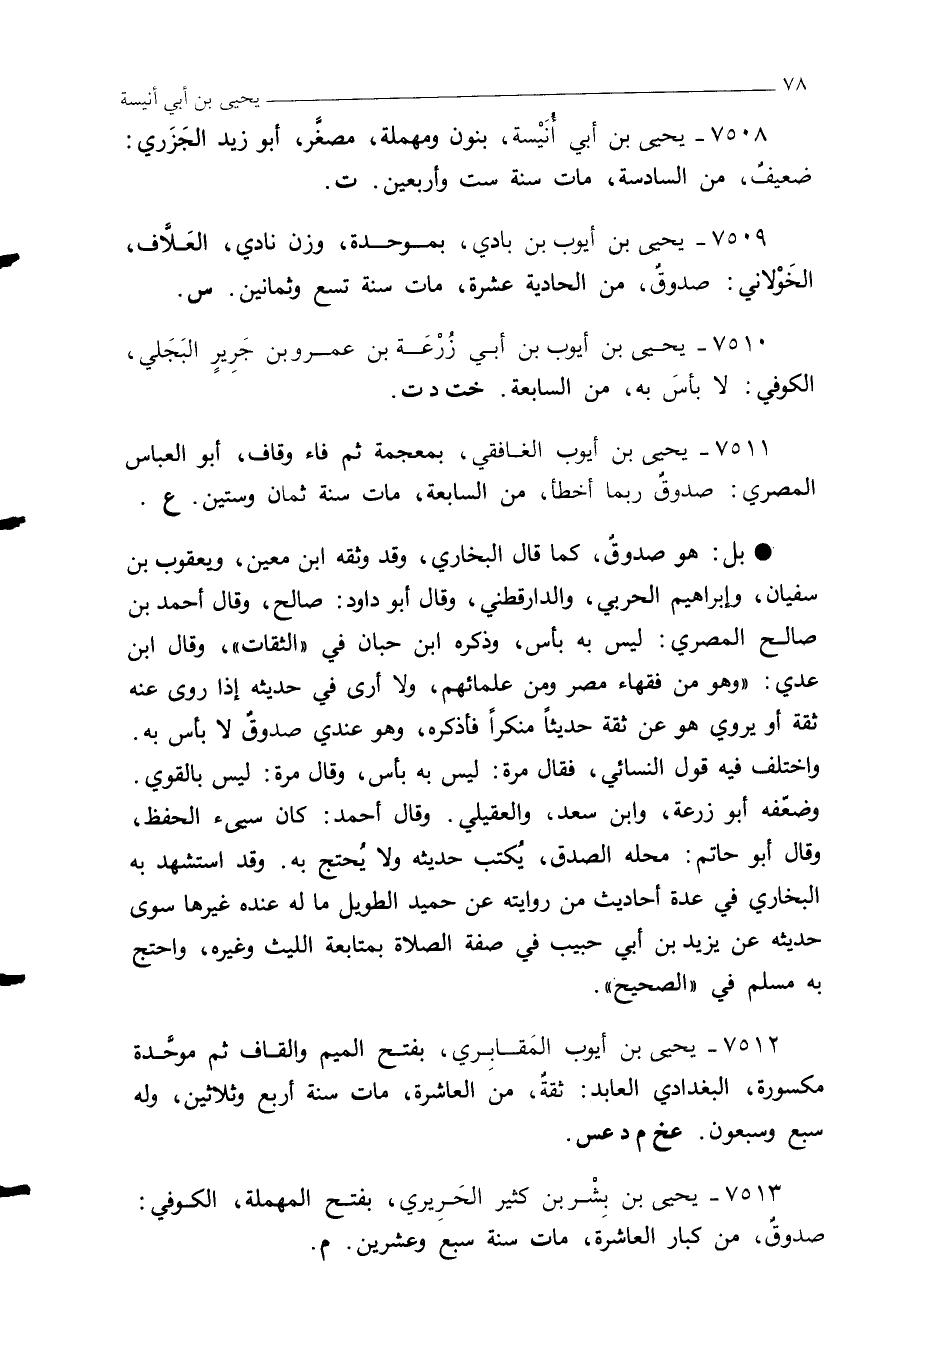 ٧٨ يحيى بن أبي أنيسة
٧٥٠٨ـ يحيى بن أبي أُنَيْسة، بنون ومهملة، مصغَّر، أبو زيد الجَزَري:
ضعيفٌ، من السادسة، مات سنة ست وأربعين. ت.
٧٥٠٩ـ يحيى بن أيوب بن بادي، بموحدة، وزن نادي، العَلَّاف،
الخَوْلاني: صدوقٌ، من الحادية عشرة، مات سنة تسع وثمانين. س.
٧٥١٠ـ يحيى بن أيوب بن أبي زُرْعَة بن عمرو بن جَرِيرٍ البَجَلي،
الكوفي: لا بأسَ به، من السابعة. خت د ت.
٧٥١١ـ يحيى بن أيوب الغافقي، بمعجمة ثم فاء وقاف، أبو العباس
المصري: صدوقٌ ربما أخطأ، من السابعة، مات سنة ثمان وستين. ع.
● بل: هو صدوقٌ، كما قال البخاري، وقد وثقه ابن معين، ويعقوب بن
سفيان، وإبراهيم الحربي، والدارقطني، وقال أبو داود: صالح، وقال أحمد بن
صالح المصري: ليس به بأس، وذكره ابن حبان في «الثقات»، وقال ابن
عدي: «وهو من فقهاء مصر ومن علمائهم، ولا أرى في حديثه إذا روى عنه
ثقة أو يروي هو عن ثقة حديثاً منكراً فأذكره، وهو عندي صدوقٌ لا بأس به.
واختلف فيه قول النسائي، فقال مرة: ليس به بأس، وقال مرة: ليس بالقوي.
وضعّفه أبو زرعة، وابن سعد، والعقيلي. وقال أحمد: كان سيىء الحفظ،
وقال أبو حاتم: محله الصدق، يُكتب حديثه ولا يُحتج به. وقد استشهد به
البخاري في عدة أحاديث من روايته عن حميد الطويل ما له عنده غيرها سوى
حديثه عن يزيد بن أبي حبيب في صفة الصلاة بمتابعة الليث وغيره، واحتج
به مسلم في «الصحيح».
٧٥١٢ـ يحيى بن أيوب المَقابِري، بفتح الميم والقاف ثم موحَّدة
مكسورة، البغدادي العابد: ثقةٌ، من العاشرة، مات سنة أربع وثلاثين، وله
سبع وسبعون. عخ م د عس.
٧٥١٣ـ يحيى بن بِشْر بن كثير الحَرِيري، بفتح المهملة، الكوفي:
صدوقٌ، من كبار العاشرة، مات سنة سبع وعشرين. م.